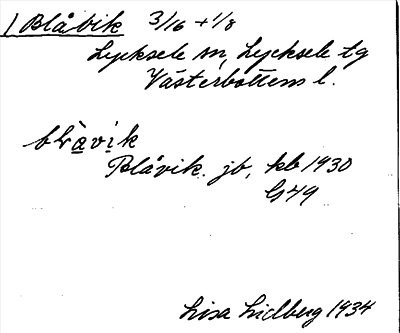 1 Blåvik 3/16 + 1/8
Lycksele sn, Lycksele tg
Västerbottens l.
blàvik
Blåvik. jb, kb 1930
G49
Lisa Lidberg 1934